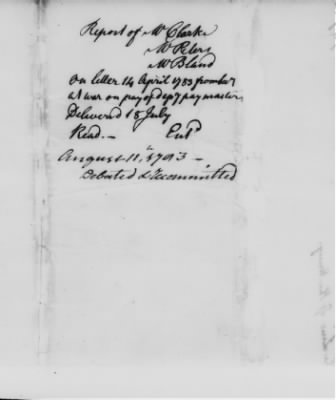 Report of Mr Clark
Mr Peters
Mr Bland
On letter 14 April 1783 from Secy
at war on pay of depy pay masters
Delivered 18 July
Read. — Entd
August 11th, 1783 —
Debated & recommitted